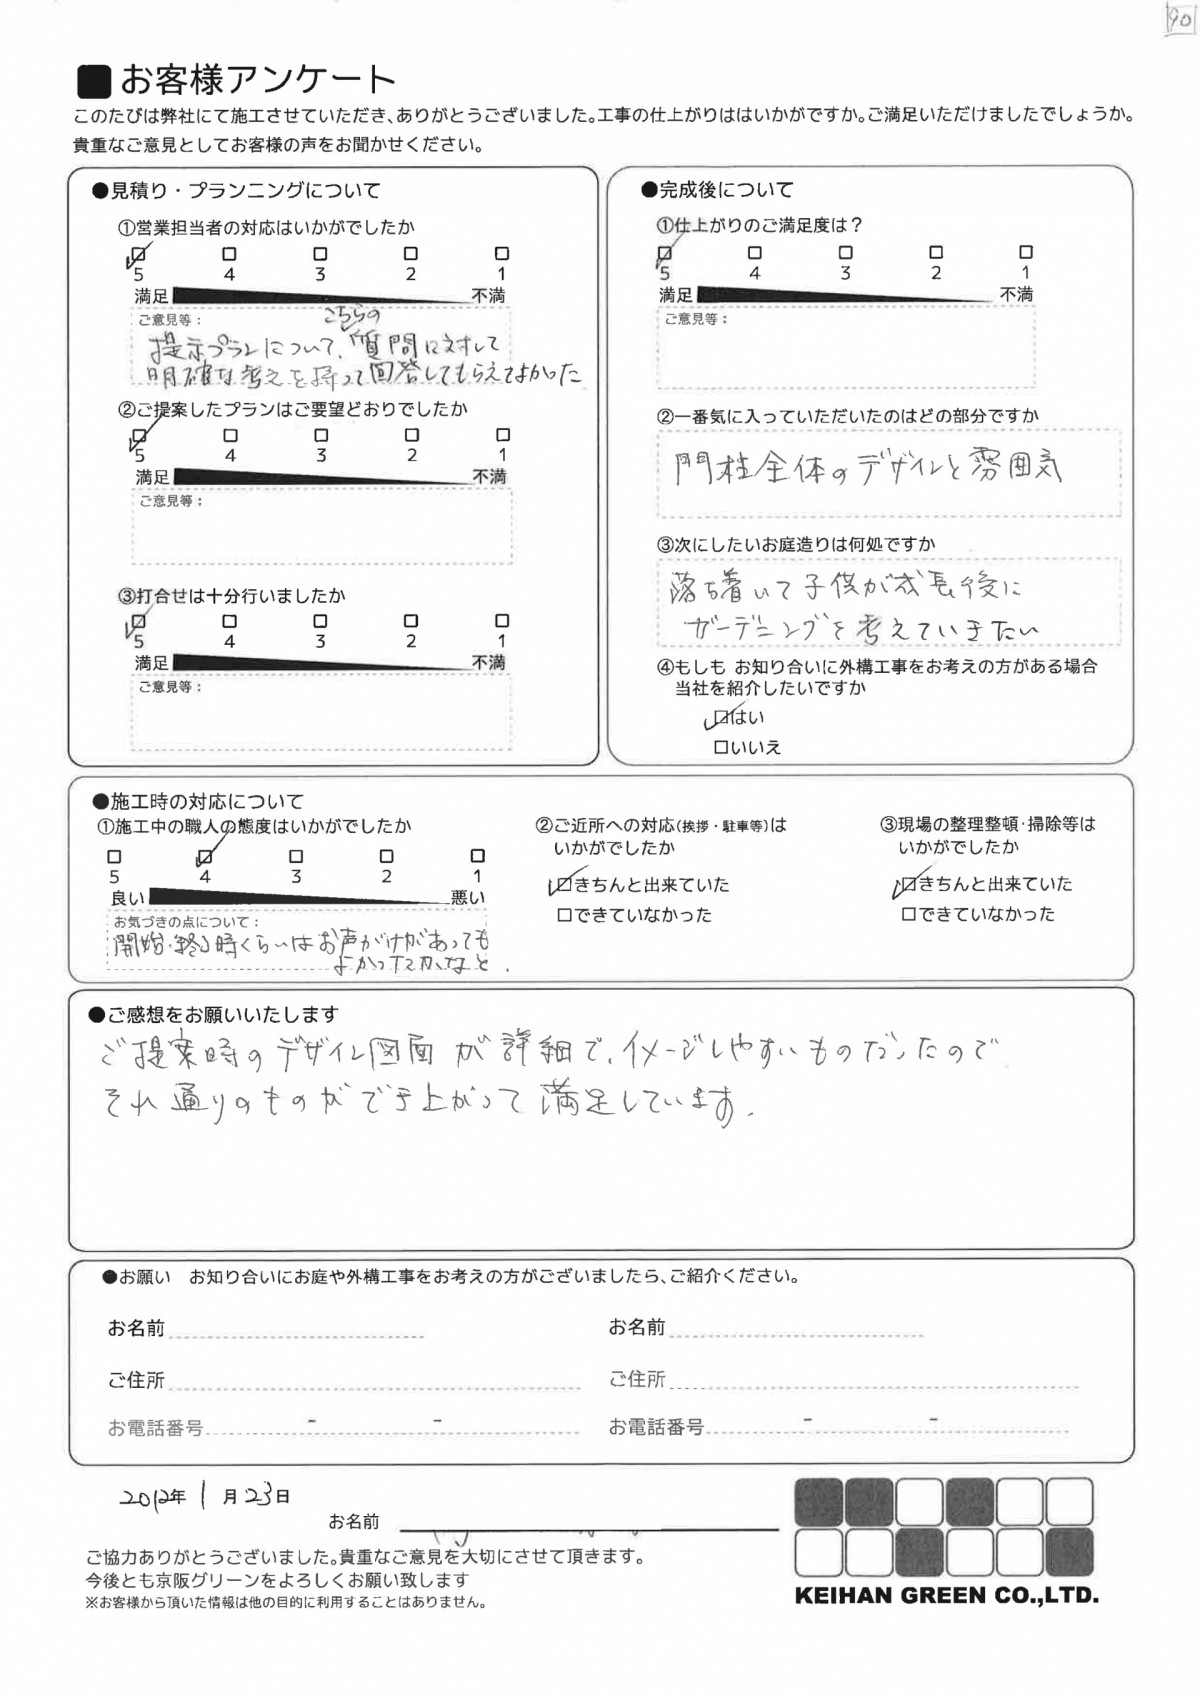 90
お客様アンケート
このたびは弊社にて施工させていただき、ありがとうございました。工事の仕上がりははいかがですか。ご満足いただけましたでしょうか。
貴重なご意見としてお客様の声をお聞かせください。
●見積り・プランニングについて
①営業担当者の対応はいかがでしたか
5 4 3 2 1
満足 不満
ご意見等：
こちらの
提示プランについて、質問に対して
明確な考えを持って回答してもらえてよかった
②ご提案したプランはご要望どおりでしたか
5 4 3 2 1
満足 不満
ご意見等：
③打合せは十分行いましたか
5 4 3 2 1
満足 不満
ご意見等：
●完成後について
①仕上がりのご満足度は？
5 4 3 2 1
満足 不満
ご意見等：
②一番気に入っていただいたのはどの部分ですか
門柱全体のデザインと雰囲気
③次にしたいお庭造りは何処ですか
落ち着いて子供が成長後に
ガーデニングを考えていきたい
④もしも お知り合いに外構工事をお考えの方がある場合
当社を紹介したいですか
□はい
□いいえ
●施工時の対応について
①施工中の職人の態度はいかがでしたか
5 4 3 2 1
良い 悪い
お気づきの点について：
開始・終了時くらいはお声がけがあっても
よかったかなと.
②ご近所への対応(挨拶・駐車等)は
いかがでしたか
□きちんと出来ていた
□できていなかった
③現場の整理整頓・掃除等は
いかがでしたか
□きちんと出来ていた
□できていなかった
●ご感想をお願いいたします
ご提案時のデザイン図面が詳細で、イメージしやすいものだったので
それ通りのものができ上がって満足しています.
●お願い お知り合いにお庭や外構工事をお考えの方がございましたら、ご紹介ください。
お名前 お名前
ご住所 ご住所
お電話番号 - - お電話番号 - -
2012年 1月23日
お名前
ご協力ありがとうございました。貴重なご意見を大切にさせて頂きます。
今後とも京阪グリーンをよろしくお願い致します
※お客様から頂いた情報は他の目的に利用することはありません。
KEIHAN GREEN CO.,LTD.